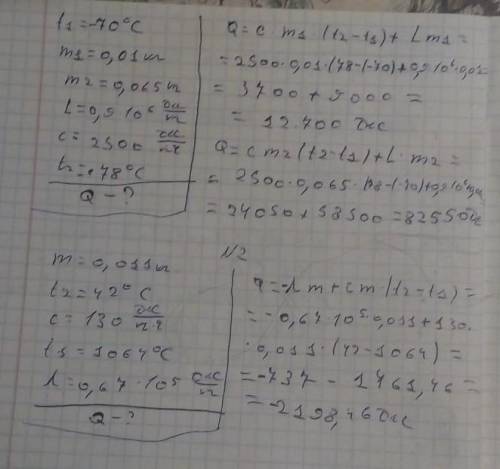 t₁ = -70°C
m₁ = 0,01 кг
m₂ = 0,065 кг
L = 0,9·10⁶ Дж/кг
c = 2500 Дж/кг·°
t₂ = +78°C
Q - ?
Q = c m₁ (t₂ - t₁) + L m₁ =
= 2500·0,01·(78-(-70)+0,9·10⁶·0,01
= 3700 + 9000 =
= 12.700 Дж
Q = c m₂ (t₂ - t₁) + L· m₂ =
= 2500·0,065·(78-(-70)+0,9·10⁶
= 24050 + 58500 = 82550 Дж
N2
m = 0,011 кг
t₂ = 42° C
c = 130 Дж/кг·°
t₁ = 1064°C
λ = 0,67·10⁵ Дж/кг
Q - ?
q = -λ m + c m (t₂ - t₁) =
= - 0,67·10⁵·0,011 + 130·
·0,011·(42-1064) =
= -737 - 1461,46 =
= -2198,46 Дж